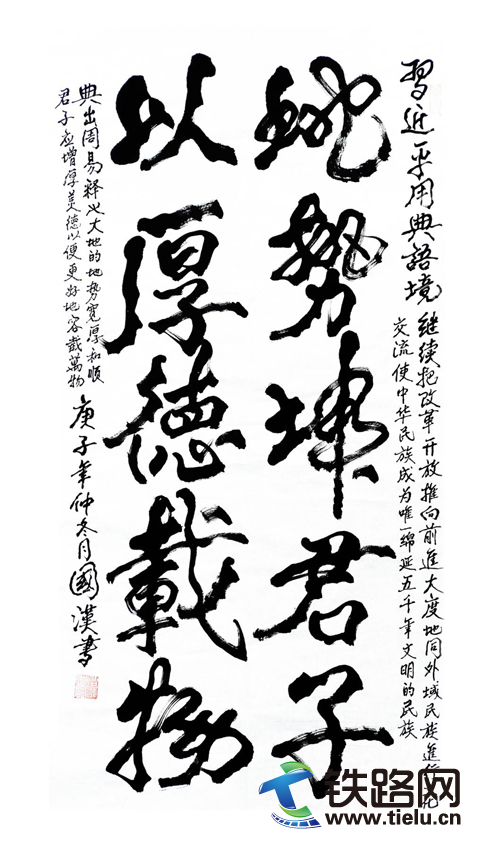 習近平用典語境
继续把改革开放推向前進大度地同外域民族進行
交流使中华民族成为唯一绵延五千年文明的民族
地勢坤君子
以厚德載物
典出周易释也大地的地势宽厚和順
君子应增厚美德以便更好地容载萬物
庚子年仲冬月國漢書
铁路网
www.tielu.cn